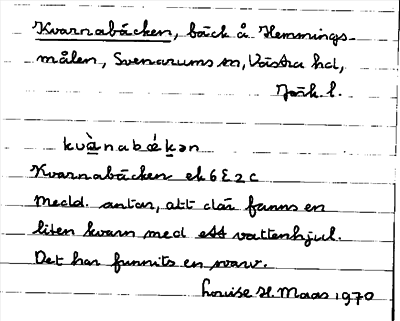 Kvarnabäcken, bäck å Hemmings-
målen, Svenarums sn, Västra hd,
Jönk. l.
kvànabǽkən
Kvarnabäcken ek 6E2c
Medd. antar, att där fanns en
liten kvarn med ett vattenhjul.
Det har funnits en svarv.
Louise H. Maas 1970